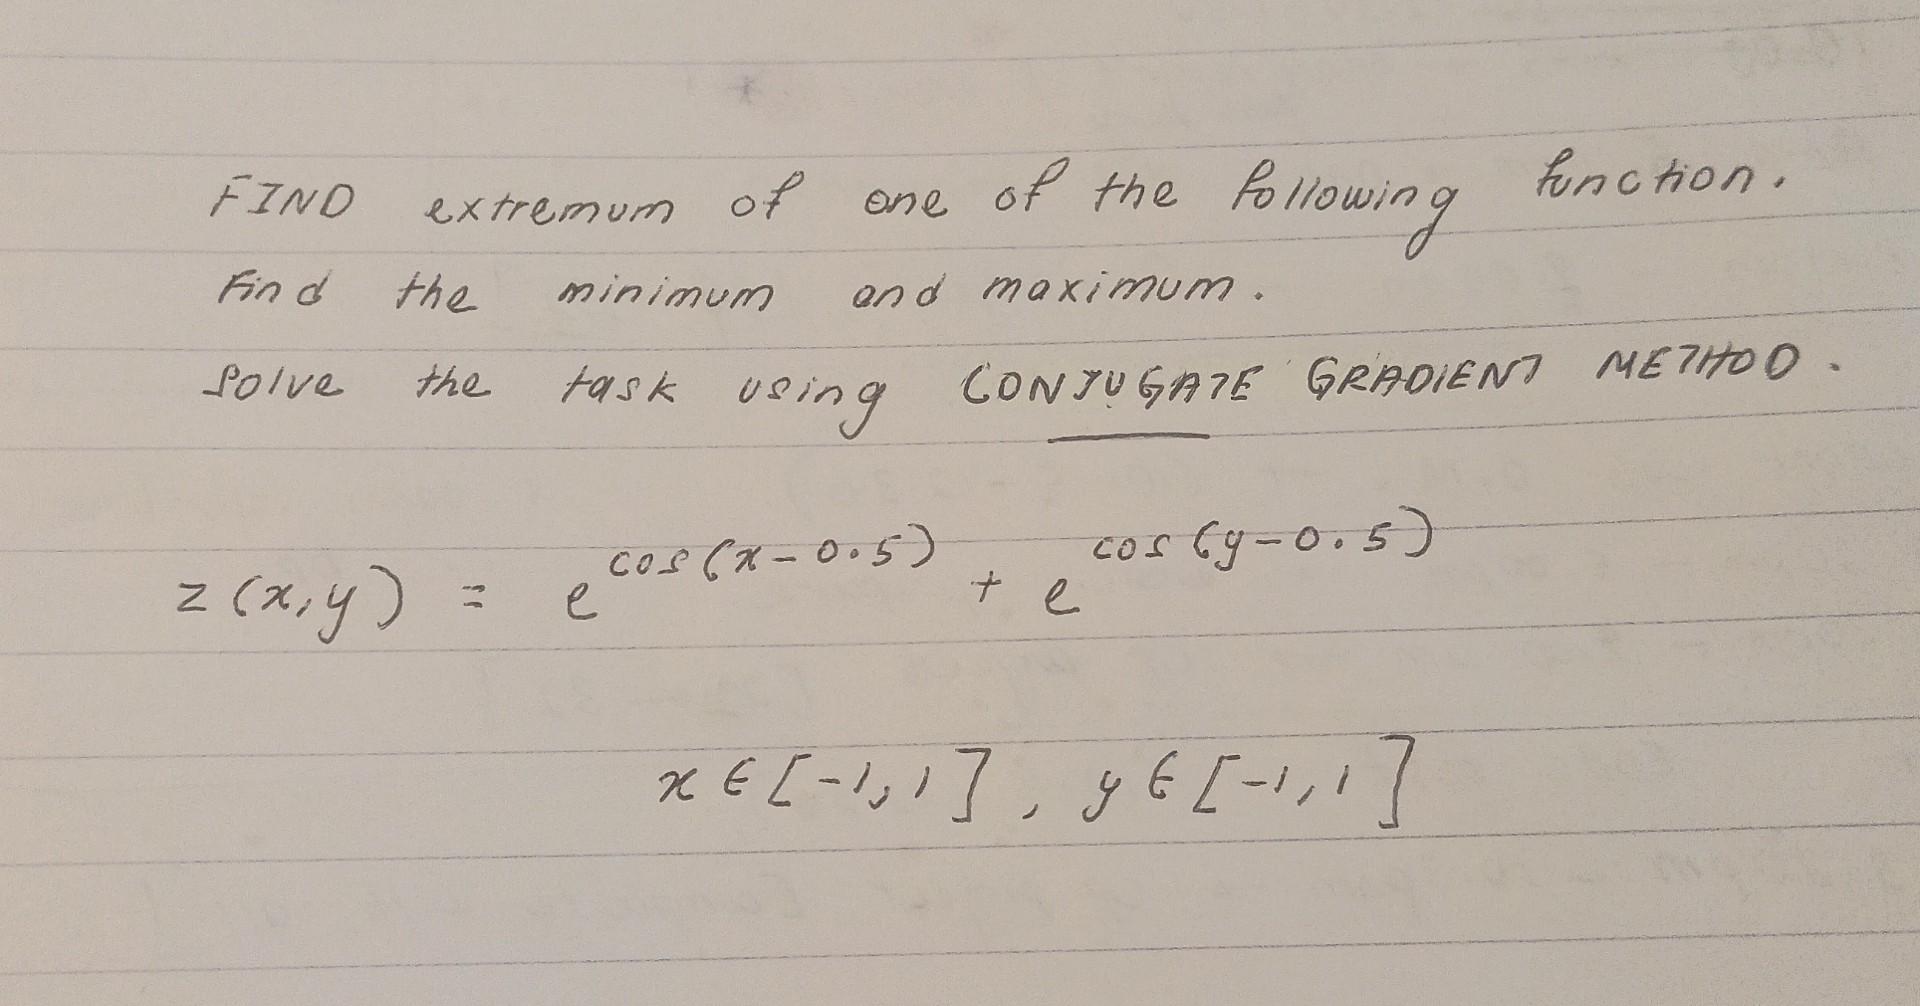 FIND extremum of one of the following function.
Find the minimum and maximum.
Solve the task using CONJUGATE GRADIENT METHOD.
z(x,y) = e^cos(x-0.5) + e^cos(y-0.5)
x ∈ [-1,1], y ∈ [-1,1]